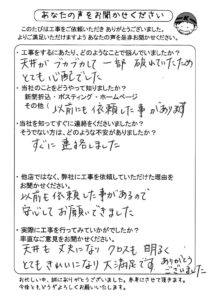 あなたの声をお聞かせください
このたびは工事をご依頼いただき ありがとうございました。
より一層ご満足いただけますよう あなたの声を是非お聞かせください。
・工事をするにあたり、どのようなことで悩んでいましたか？
天井がブカブカして 一部 破れていたため
とても心配でした
・当社のことをどうやって知りましたか？
新聞折込・ポスティング・ホームページ
その他（ 以前にも依頼した事があります
・当社を知ってすぐに連絡をくださいましたか？
そうでない方は、どのような不安がありましたか？
すぐに連絡しました
・他店ではなく、弊社に工事を依頼していただけた理由を
お聞かせください。
以前も依頼した事があるので
安心してお願いできました
・実際に工事を行ってみていかがでしたか？
率直なご意見をお聞かせください
天井も丈夫になり クロスも明るく
とてもきれいになり 大満足です ありがとう
ございました
お忙しい中、誠にありがとうございました。参考にさせて頂きます。
今後ともどうぞよろしくお願いいたします。